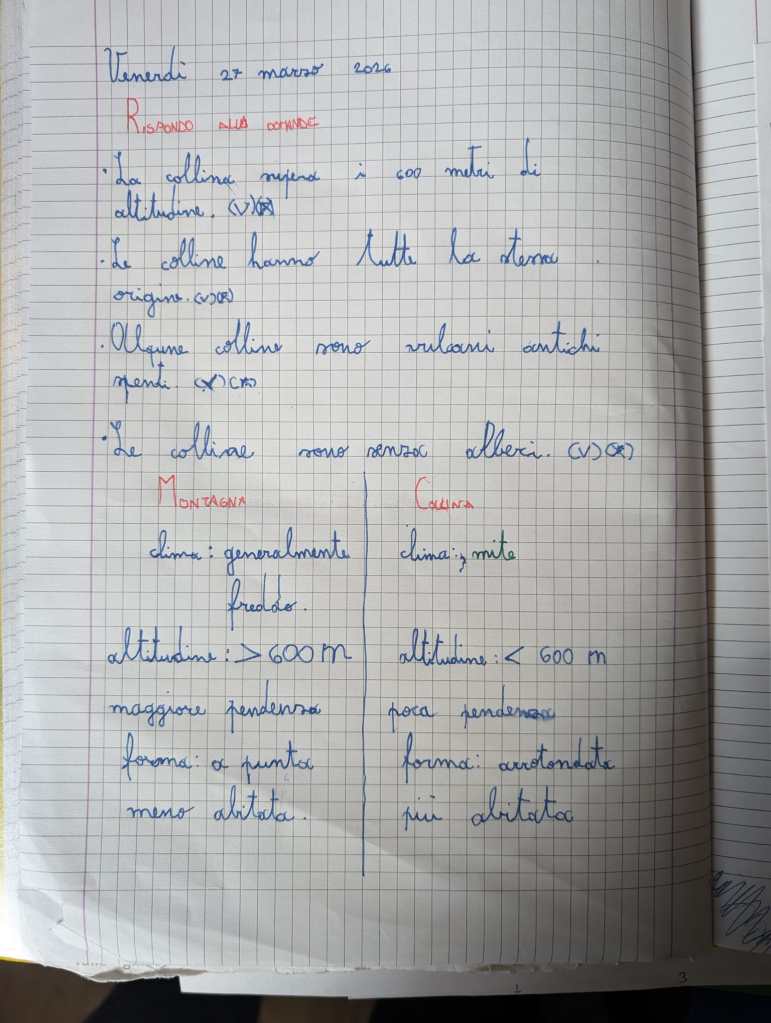 Venerdi 27 marzo 2026
RISPONDO ALLA DOMANDE
• La collina supera i 600 metri di
altitudine. (V)(F)
• Le colline hanno tutte la stessa
origine. (V)(F)
• Alcune colline sono vulcani antichi
spenti. (V)(F)
• Le colline sono senza alberi. (V)(F)
MONTAGNA COLLINA
clima: generalmente clima: mite
freddo.
altitudine: > 600 m altitudine: < 600 m
maggiore pendenza poca pendenza
forma: a punta forma: arrotondata
meno abitata. più abitata
3